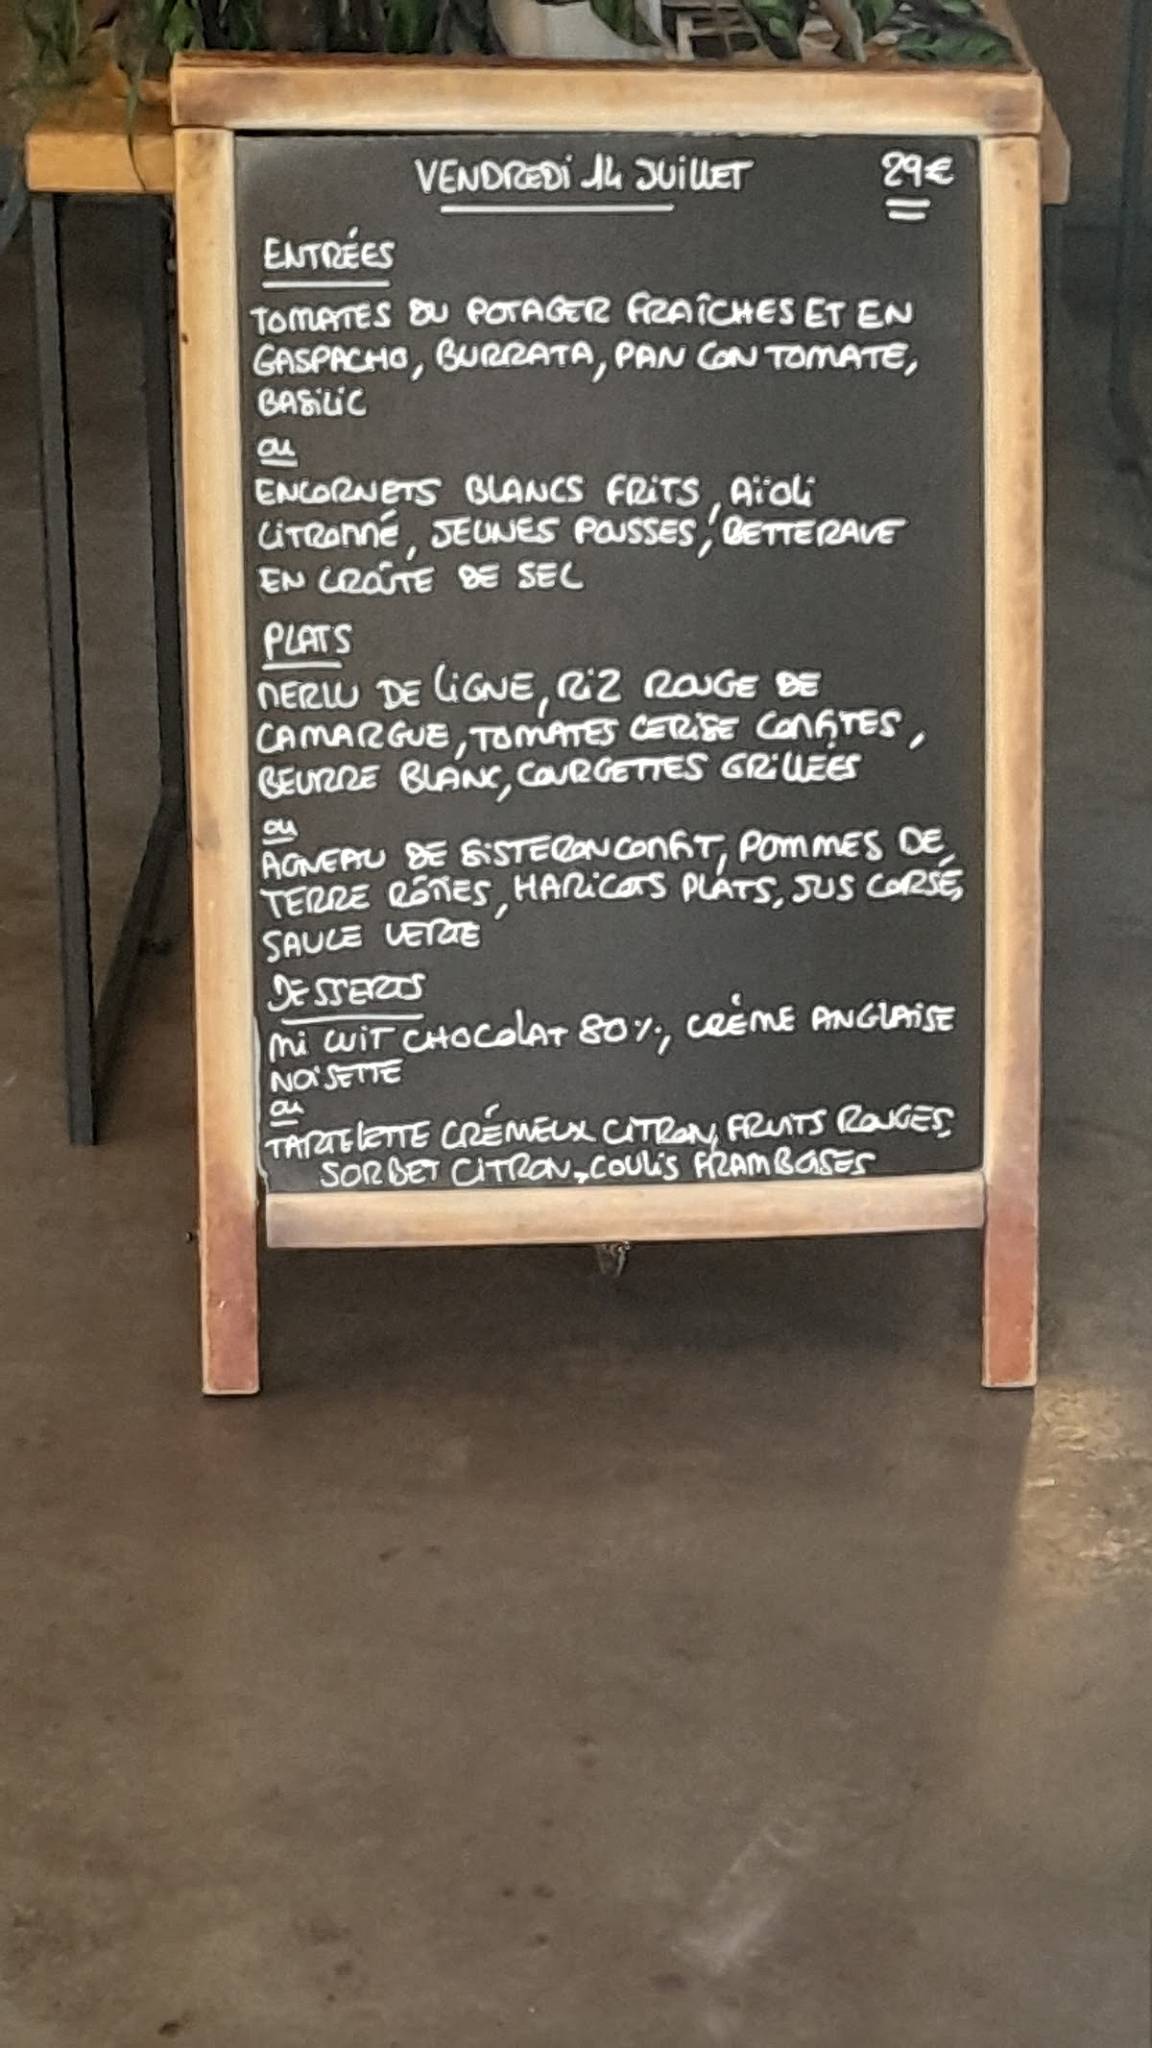 VENDREDI 14 JUILLET 29€
ENTRÉES
TOMATES DU POTAGER FRAÎCHES ET EN
GASPACHO, BURRATA, PAN CON TOMATE,
BASILIC
ou
ENCORNETS BLANCS FRITS, AÏOLI
CITRONNÉ, JEUNES POUSSES, BETTERAVE
EN CROÛTE DE SEL
PLATS
MERLU DE LIGNE, RIZ ROUGE DE
CAMARGUE, TOMATES CERISE CONFITES,
BEURRE BLANC, COURGETTES GRILLÉES
ou
AGNEAU DE SISTERON CONFIT, POMMES DE
TERRE RÔTIES, HARICOTS PLATS, JUS CORSÉ,
SAUCE VERTE
DESSERTS
MI CUIT CHOCOLAT 80%, CRÈME ANGLAISE
NOISETTE
ou
TARTELETTE CRÉMEUX CITRON, FRUITS ROUGES,
SORBET CITRON, COULIS FRAMBOISES